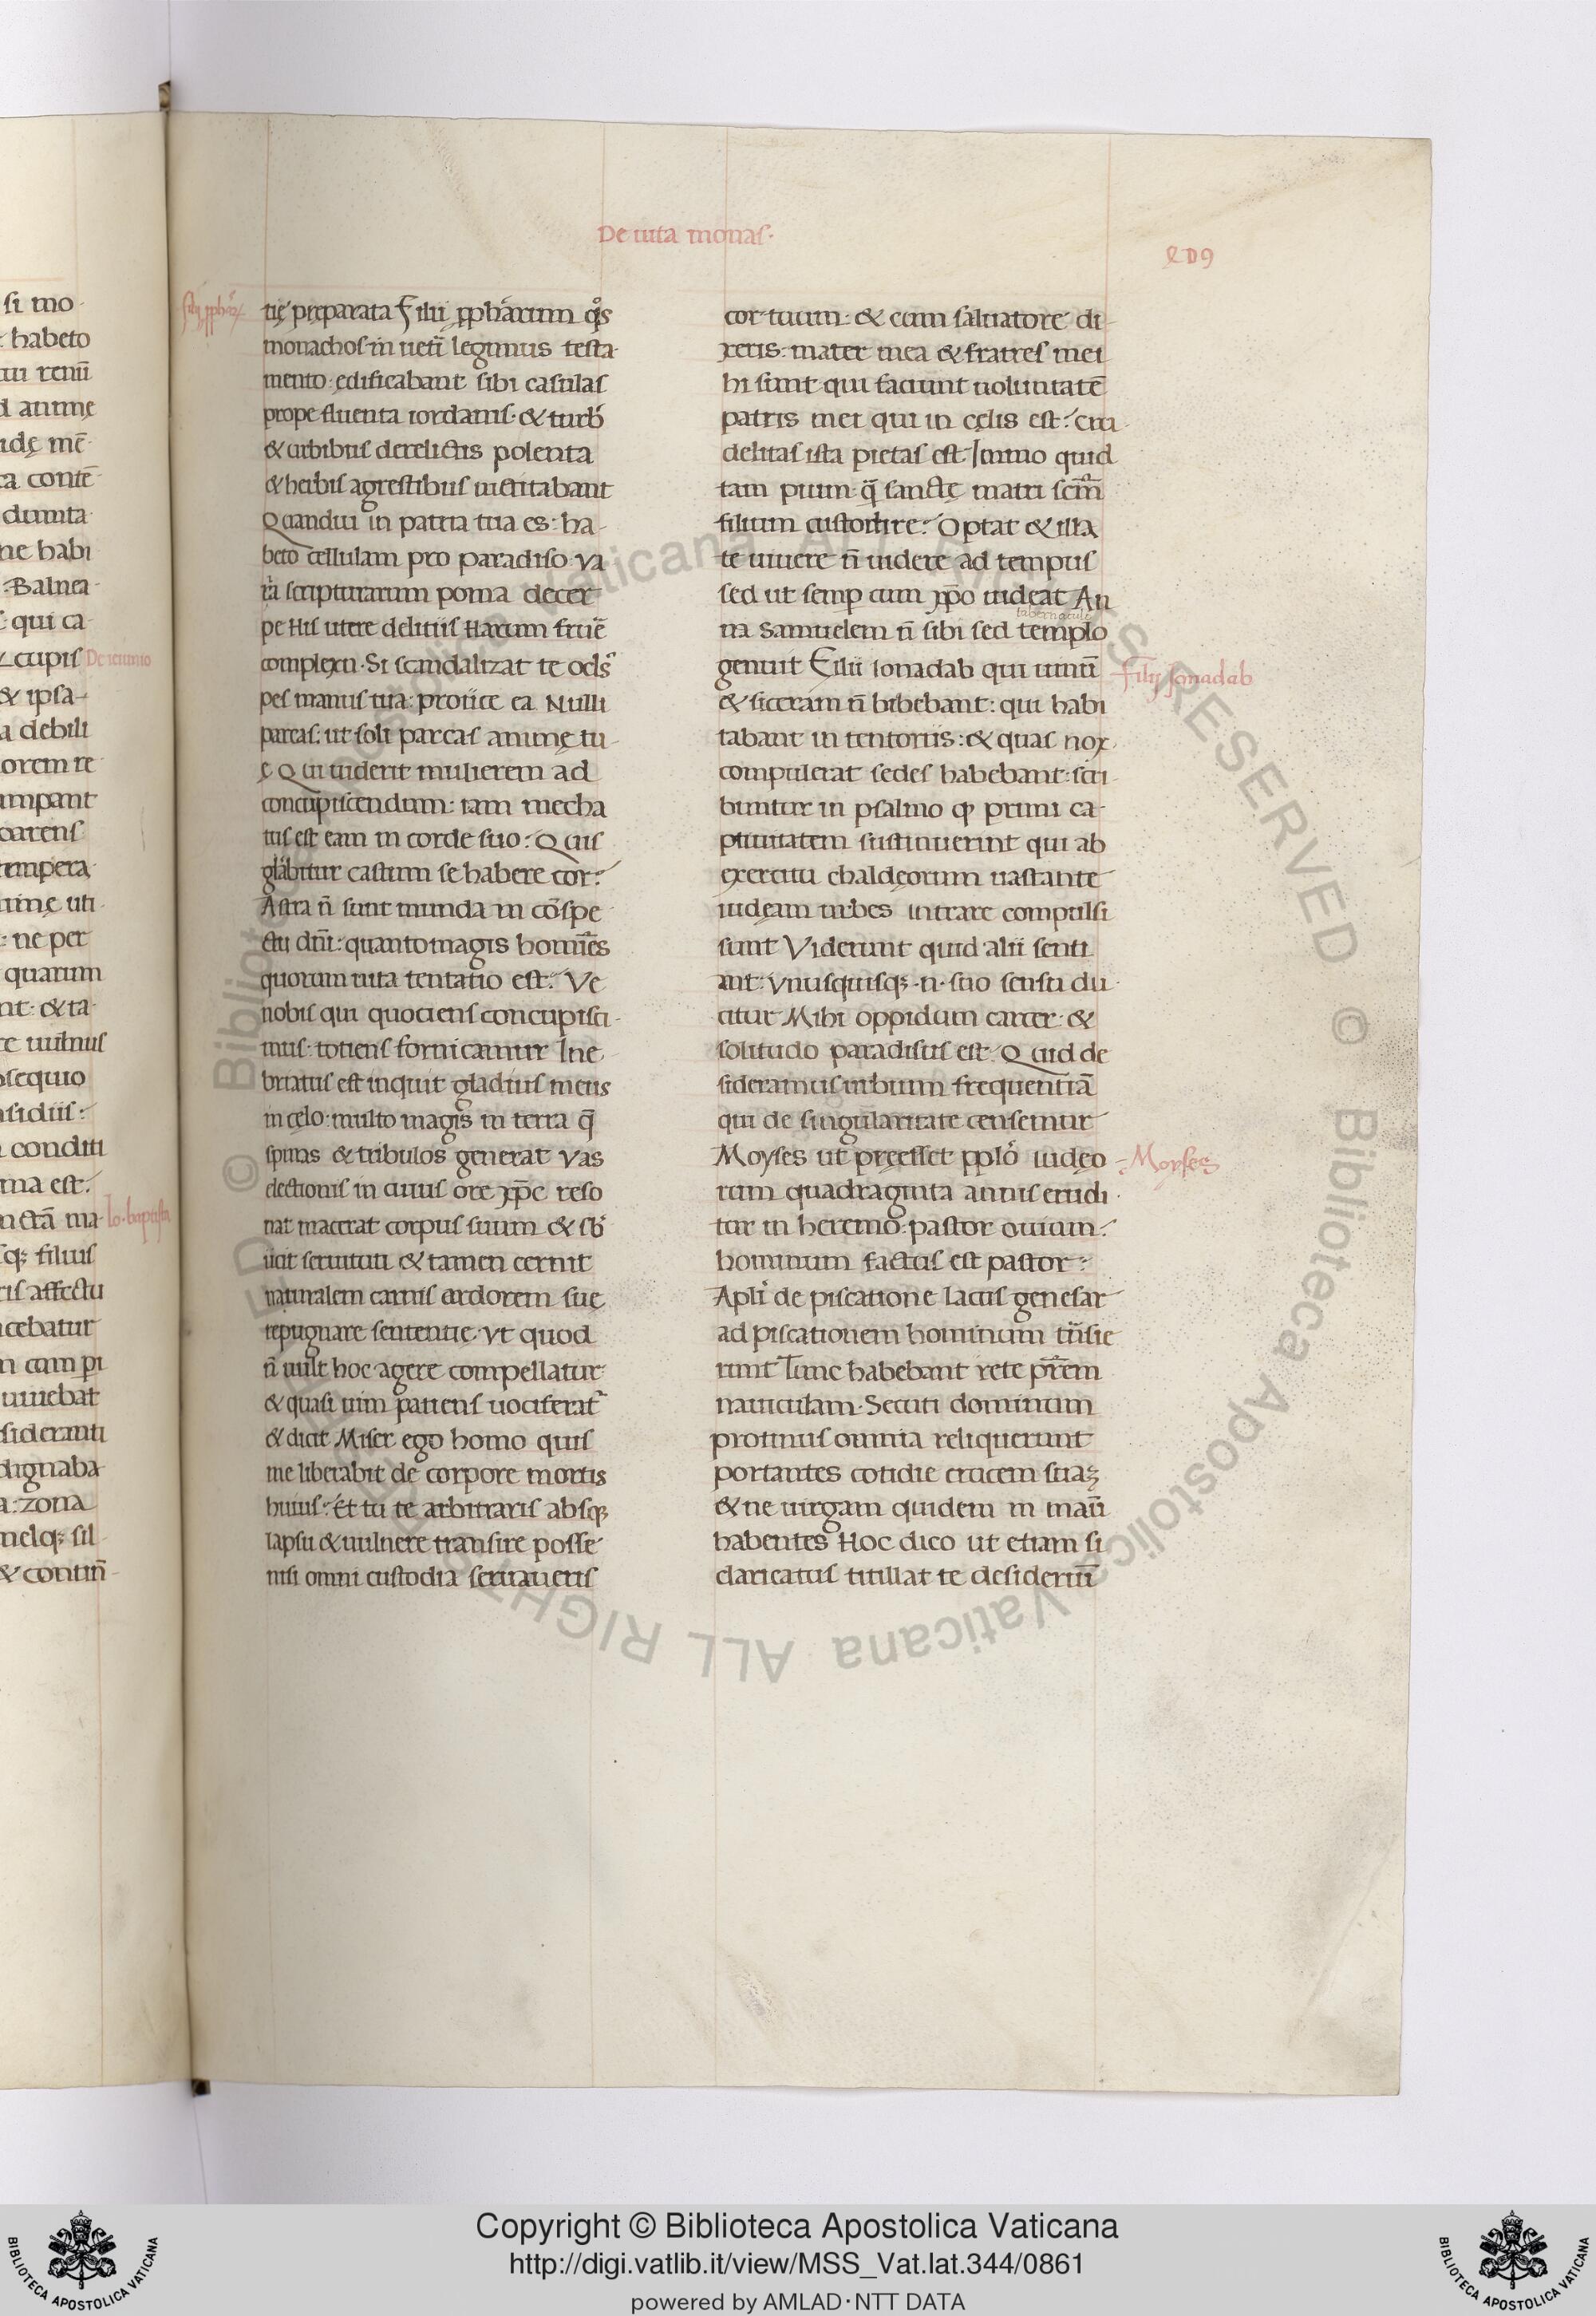 De uita monas·
429
si mo-
habeto
tui renū
d animę
idę mē-
ta contē-
duuita
ne habi
: Balnea-
: qui ca-
cupis De ieiunio
& ipsa-
a debili
orem te
umpant
parens
tempera
uinę uti-
: ne per
quarum
nt: & ta-
re uulnus
osequio
nsidiis:
conditi
ma est:
nctā ma- Io. baptista
sq; filius
ris affectu
scebatur
n cum pi
uiuebat
sideranti
dignaba
a: zona
melq; sil
& contin̄-
filij pphārz
tię pręparata Filii pphārum q̊s
monachos in uetī legimus testa-
mento: edificabant sibi casulas
prope fluenta iordanis· & turb̛
& urbibus derelictis polenta
& herbis agrestibus uictitabant
Quandiu in patria tua es: ha-
beto cellulam pro paradiso· va
ria scripturarum poma decer-
pe His utere delitiis Harum fruē
complexu· Si scandalizat te ocls̉
pes manus tua: proiice ea Nulli
parcas: ut soli parcas animę tu-
ę Qui uiderit mulierem ad
concupiscendum: iam mecha
tus est eam in corde suo: Quis
glābitur castum se habere cor:
Astra n̄ sunt munda in cōspe-
ctu dn̄i: quanto magis homīes
quorum uita tentatio est: Ve
nobis qui quociens concupisci-
mus: totiens fornicamur Ine-
briatus est inquit gladius meus
in cęlo: multo magis in terra q̄
spinas & tribulos generat Vas
electionis in cuius ore xp̄c reso
nat macerat corpus suum & sb̛
iicit seruituti & tamen cernit
naturalem carnis ardorem suę
repugnare sententię· vt quod
n̄ uult hoc agere compellatur
& quasi uim patiens uociferat᷑
& dicit Miser ego homo quis
me liberabit de corpore mortis
huius: Et tu te arbitraris absq;
lapsu & uulnere transire posse
nisi omni custodia seruaueris
cor tuum: & cum saluatore di-
xeris: mater mea & fratres mei
hi sunt qui faciunt uoluntatē
patris mei qui in cęlis est: Cru-
delitas ista pietas est Immo quid
tam pium: q̄ sanctę matri scm̄
filium custodire: Optat & illa
te uiuere n̄ uidere ad tempus
sed ut semp cum xp̄o uideat An
tabernaculo
na Samuelem n̄ sibi sed templo
genuit Filii ionadab qui uinū Filij Jonadab
& siceram n̄ bibebant: qui habi
tabant in tentoriis: & quas nox
compulerat sedes habebant: scri
buntur in psalmo q primi ca-
ptiuitatem sustinuerint qui ab
exercitu chaldęorum uastante
iudęam urbes intrare compulsi
sunt Viderint quid alii senti
ant: vnusquisq; ·n· suo sensu du-
citur Mihi oppidum carcer· &
solitudo paradisus est: Quid de
sideramus urbium frequentiā
qui de singularitate censemur
Moyses ut pręesset pplo̓ iudęo - Moyses
rum quadraginta annis erudi-
tur in heremo: pastor ouium:
hominum factus est pastor:
Apl̓i de piscatione lacus genesar
ad piscationem hominum tn̄sie
runt Tunc habebant rete pr̄em
nauiculam· Secuti dominum
protinus omnia reliquerunt
portantes cotidie crucem suaz
& ne uirgam quidem in manū
habentes Hoc dico ut etiam si
claricatus titillat te desideriū
© Biblioteca Apostolica Vaticana ALL RIGHTS RESERVED © Biblioteca Apostolica Vaticana ALL RIGHTS RESERVED
Copyright © Biblioteca Apostolica Vaticana
http://digi.vatlib.it/view/MSS_Vat.lat.344/0861
powered by AMLAD·NTT DATA
BIBLIOTECA APOSTOLICA VATICANA
BIBLIOTECA APOSTOLICA VATICANA